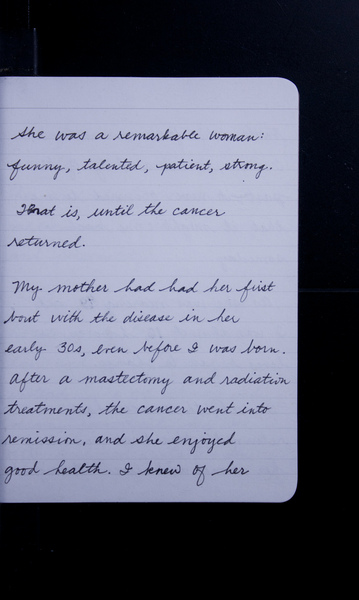 She was a remarkable woman:
funny, talented, patient, strong.
That is, until the cancer
returned.
My mother had had her first
bout with the disease in her
early 30s, even before I was born.
After a mastectomy and radiation
treatments, the cancer went into
remission, and she enjoyed
good health. I knew of her